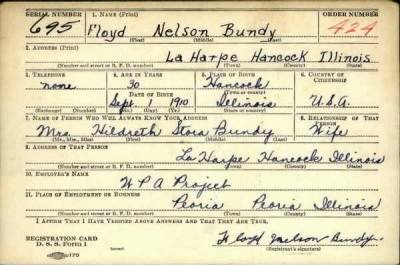 SERIAL NUMBER 1. NAME (Print) ORDER NUMBER
695 Floyd Nelson Bundy 424
(First) (Middle) (Last)
2. ADDRESS (Print)
La Harpe Hancock Illinois
(Number and street or R. F. D. number) (Town) (County) (State)
3. TELEPHONE 4. AGE IN YEARS 5. PLACE OF BIRTH 6. COUNTRY OF CITIZENSHIP
none 30 Hancock
DATE OF BIRTH (Town or county)
Sept. 1 1910 Illinois U.S.A.
(Exchange) (Number) (Mo.) (Day) (Yr.) (State or country)
7. NAME OF PERSON WHO WILL ALWAYS KNOW YOUR ADDRESS 8. RELATIONSHIP OF THAT PERSON
Mrs. Hildreth Bundy Wife
(Mr., Mrs., Miss) (First) (Middle) (Last)
9. ADDRESS OF THAT PERSON
La Harpe Hancock Illinois
(Number and street or R. F. D. number) (Town) (County) (State)
10. EMPLOYER'S NAME
W P A Project
11. PLACE OF EMPLOYMENT OR BUSINESS
Peoria Peoria Illinois
(Number and street or R. F. D. number) (Town) (County) (State)
I AFFIRM THAT I HAVE VERIFIED ABOVE ANSWERS AND THAT THEY ARE TRUE.
REGISTRATION CARD Floyd Nelson Bundy
D. S. S. Form 1 (Registrant's signature)